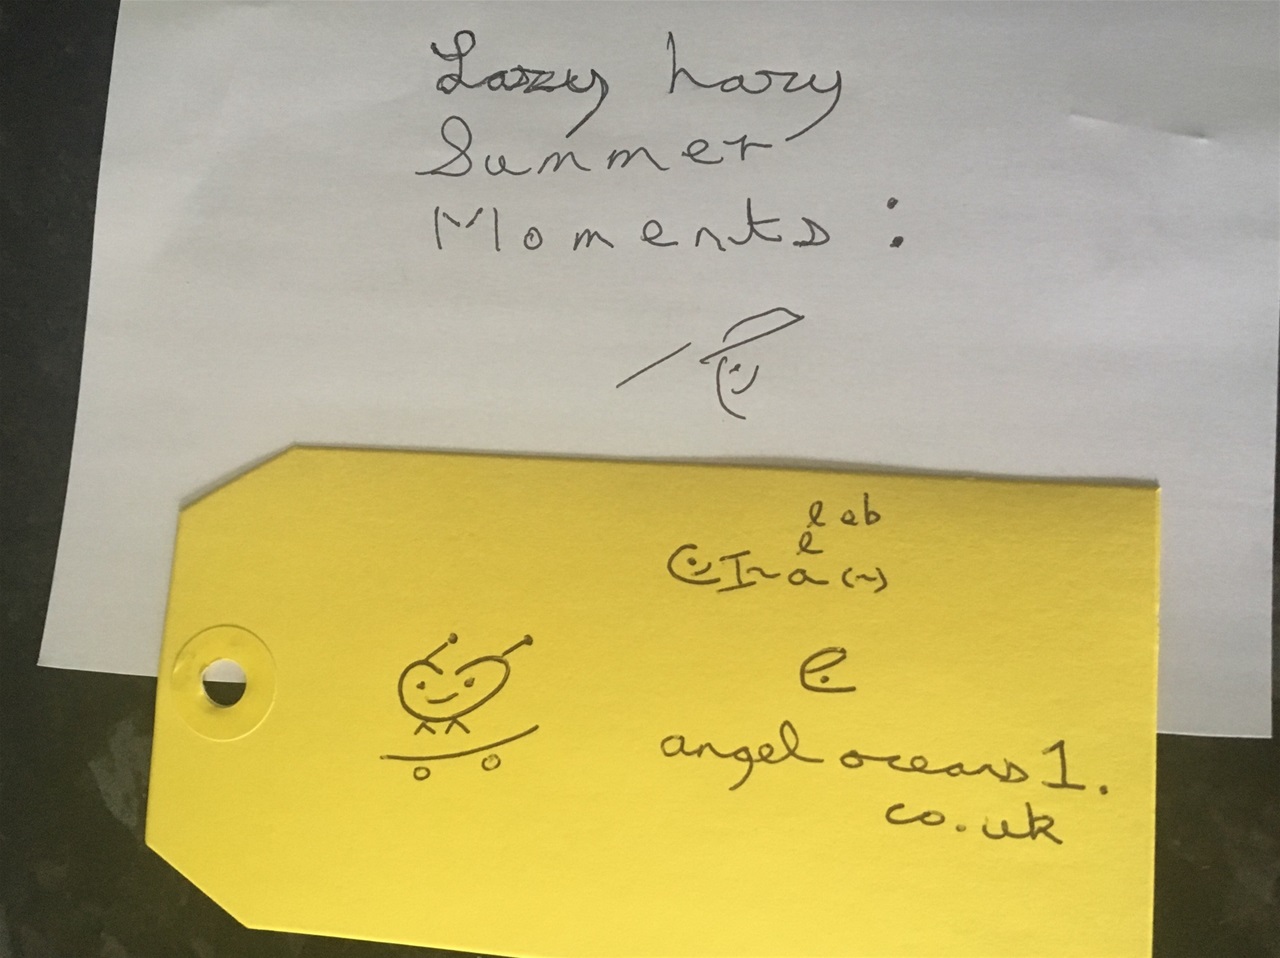 Lazzy hazy
Summer
Moments :
lab
angel oceans 1.
co.uk